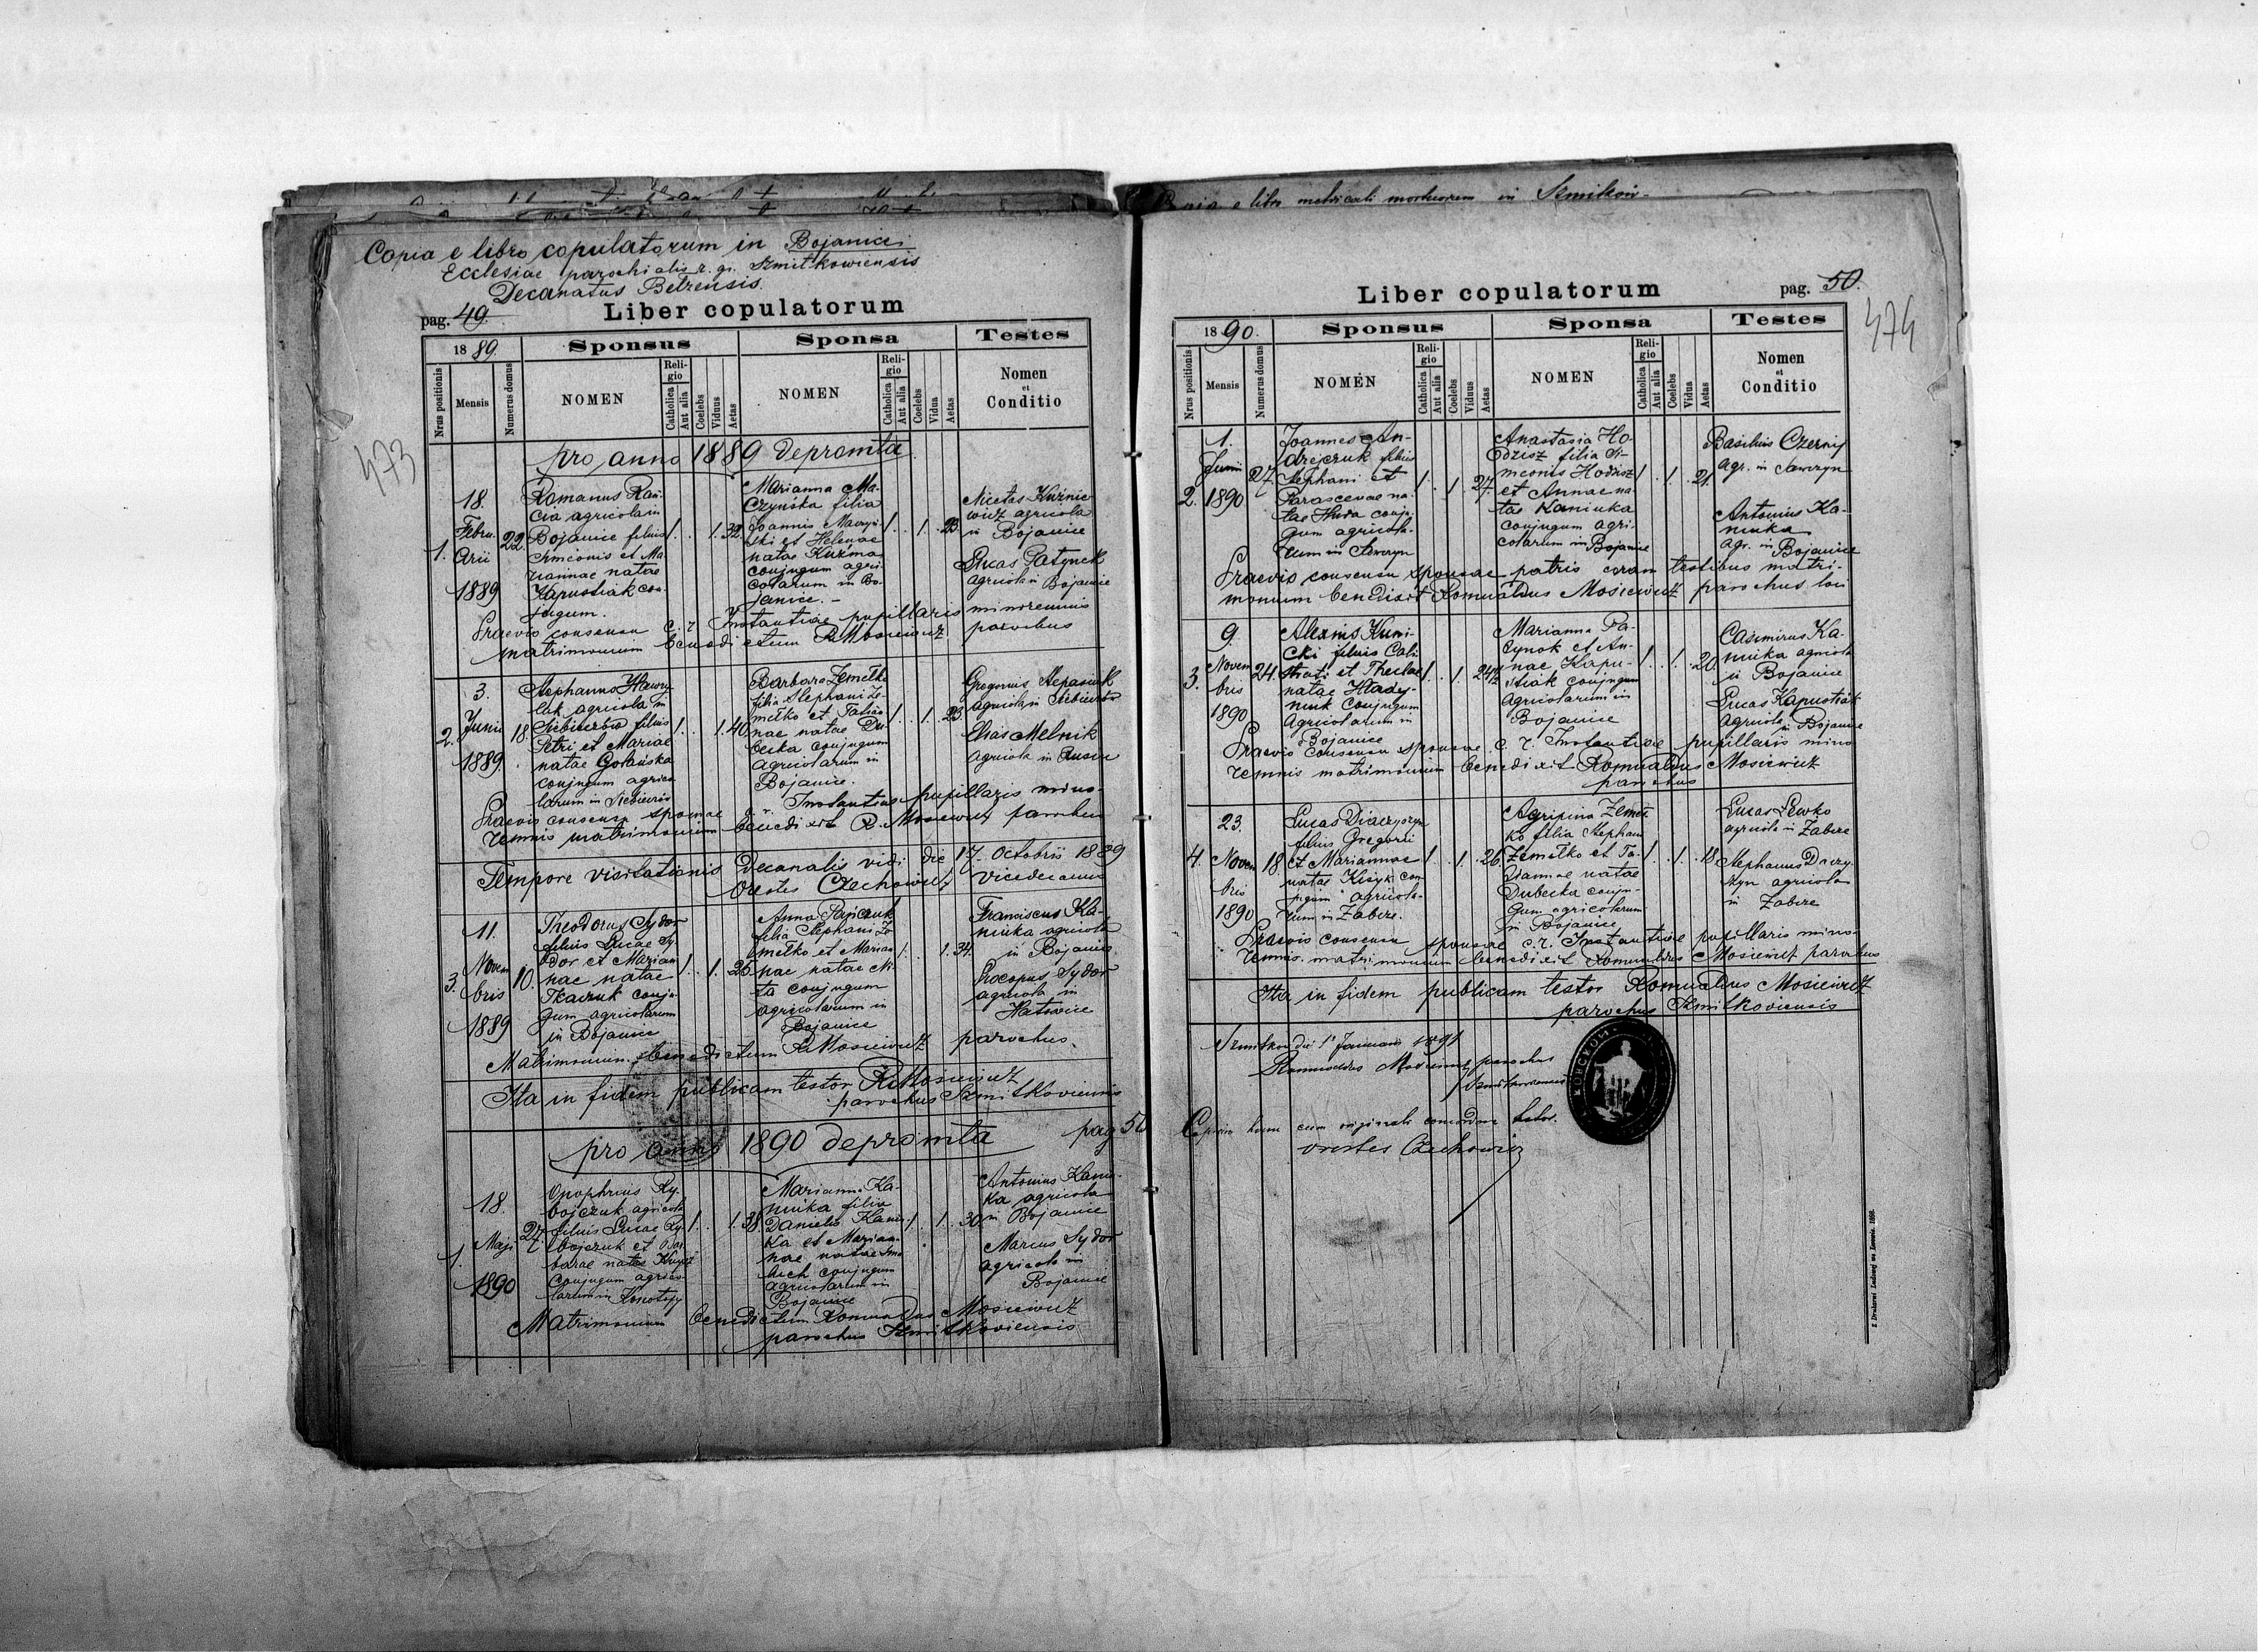 Copia e libro copulatorum in Bojanice
Ecclesiae parochialis r. gr. Szmitkowiensis
Decanatus Belzensis.
pag. 49.
Liber copulatorum
473
1889.
Sponsus
Sponsa
Testes
Nrus positionis
Mensis
Numerus domus
NOMEN
Religio
Catholica
Aut alia
Coelebs
Viduus
Aetas
NOMEN
Religio
Catholica
Aut alia
Coelebs
Vidua
Aetas
Nomen
et
Conditio
pro anno 1889 depromta
1.
18.
Febru
arii
1889
22
Romanus
cia agricola in
Bojanice filius
Simeonis et Ma
riannae natae
Kapustiak con
jugum.
1. . 1. 32
Marianna Ma-
czyńska filia
Joannis Maczyń
ski et Helenae
natae Kuzma
conjugum agri
colarum in Bo
janice. -
1. . 1. 23
Nicetas Kuźnie
wicz agricola
in Bojanice
Lucas Patynek
agricola in Bojanice
Praevio consensu c. r. Instantiae pupillaris minorennis
matrimonium benedictum R. Mosiewicz parochus
2.
3.
Junii
1889.
18
Stephanus Hawry
luk agricola in
Siebieczów filius
Petri et Mariae
natae Golańska
conjugum agrico
larum in Siebieczów
1. . 1. 40
Barbara Zemełko
filia Stephani Ze-
mełko et Tatian
nae natae Du
becka conjugum
agricolarum in
Bojanice.
1. . 1. 23.
Gregorius Stepasiuk
agricola in Siebieczów
Elias Melnik
agricola in Rusin
Praevio consensu sponsae c. r. Instantiae pupillaris mino-
rennis matrimonium benedixit R. Mosiewicz parochus
Tempore visitationis Decanalis vidi die 17. Octobris 1889
Orestes Czechowicz Vicedecanus
3.
11.
Novem
bris
1889
10.
Theodorus Sydor
filius Lucae Sy
dor et Marian
nae natae
Tkaczuk conju
gum agricolarum
in Bojanice
1. . 1. 25
Anna Pańczuk
filia Stephani Ze
mełko et Marian
nae natae Ni
ta conjugum
agricolarum in
Bojanice
1. . 1. 34.
Franciscus Ka-
niuka agricola
in Bojanice
Procopius Sydor
agricola in
Hatowice
Matrimonium benedictum R. Mosiewicz parochus.
Ita in fidem publicam testor R. Mosiewicz
parochus Szmitkoviensis
pro anno 1890 depromta pag 50
1.
18.
Maji
1890
27
Onophrius Ry-
bojczuk agricola
filius Lucae Ry-
bojczuk et Bar
barae natae
conjugum agrico
larum in Konotopy
1. . 1. 38.
Marianna Ka-
niuka filia
Danielis Kaniu-
ka et Marian-
nae natae
conjugum
agricolarum in
Bojanice
1. . 1. 30.
Antonius Kaniu-
ka agricola
in Bojanice
Marcus Sydor
agricola in
Bojanice
Matrimonium benedictum Romualdus Mosiewicz
parochus Szmitkoviensis
Copia e libro metricali mortuorum in Szmitków-
Liber copulatorum
pag. 50.
474
1890.
Sponsus
Sponsa
Testes
Nrus positionis
Mensis
Numerus domus
NOMEN
Religio
Catholica
Aut alia
Coelebs
Viduus
Aetas
NOMEN
Religio
Catholica
Aut alia
Coelebs
Vidua
Aetas
Nomen
et
Conditio
2.
1.
Junii
1890
27
Joannes An-
drejczuk filius
Stephani et
Parascevae na-
tae Huda conju
gum agricola-
rum in Sawczyn
1. . 1. 27.
Anastasia Ho-
dzisz filia Si-
meonis Hodzisz
et Annae na-
tae Kaniuka
conjugum agri-
colarum in Bojanice
1. . 1. 21.
Basilius Czerniy
agr. in Sawczyn
Antonius Ka-
niuka
agr. in Bojanice
Praevio consensu sponsae patris coram testibus matri-
monium benedixit Romualdus Mosiewicz parochus loci
3.
9.
Novem
bris
1890
24.
Alexius Kuni-
cki filius Cali
strati et Theclae
natae Hlady-
niuk conjugum
agricolarum in
Bojanice
1. . 1. 24½
Marianna Pa-
tynok et An-
nae Kapu-
stiak conjugum
agricolarum in
Bojanice
1. . 1. 20.
Casimirus Ka-
niuka agricola
in Bojanice
Lucas Kapustiak
agricola in Bojanice
Praevio consensu sponsae c. r. Instantiae pupillaris mino
rennis matrimonium benedixit Romualdus Mosiewicz
parochus
4.
23.
Novem
bris
1890
18.
Lucas Diaczyszyn
filius Gregorii
et Mariannae
natae Kisyk con
jugum agricola-
rum in Zabcze.
1. . 1. 26
Agripina Zemeł-
ko filia Stephani
Zemełko et Ta-
tiannae natae
Dubecka conju-
gum agricolarum
in Bojanice
1. . 1. 18
Lucas Lewko
agricola in Zabcze
Stephanus Diaczy-
szyn agricola
in Zabcze
Praevio consensu sponsae c. r. Instantiae pupillaris mino-
rennis. matrimonium benedixit Romualdus Mosiewicz parochus
Ita in fidem publicam testor Romualdus Mosiewicz
parochus Szmitkoviensis
Szmitków die 1 Januarii 1891
Romualdus Mosiewicz parochus
Szmitkowiensis
Copiam hanc cum originali concordare testor.
Orestes Czechowicz
Z Drukarni Ludowej we Lwowie. 1886.